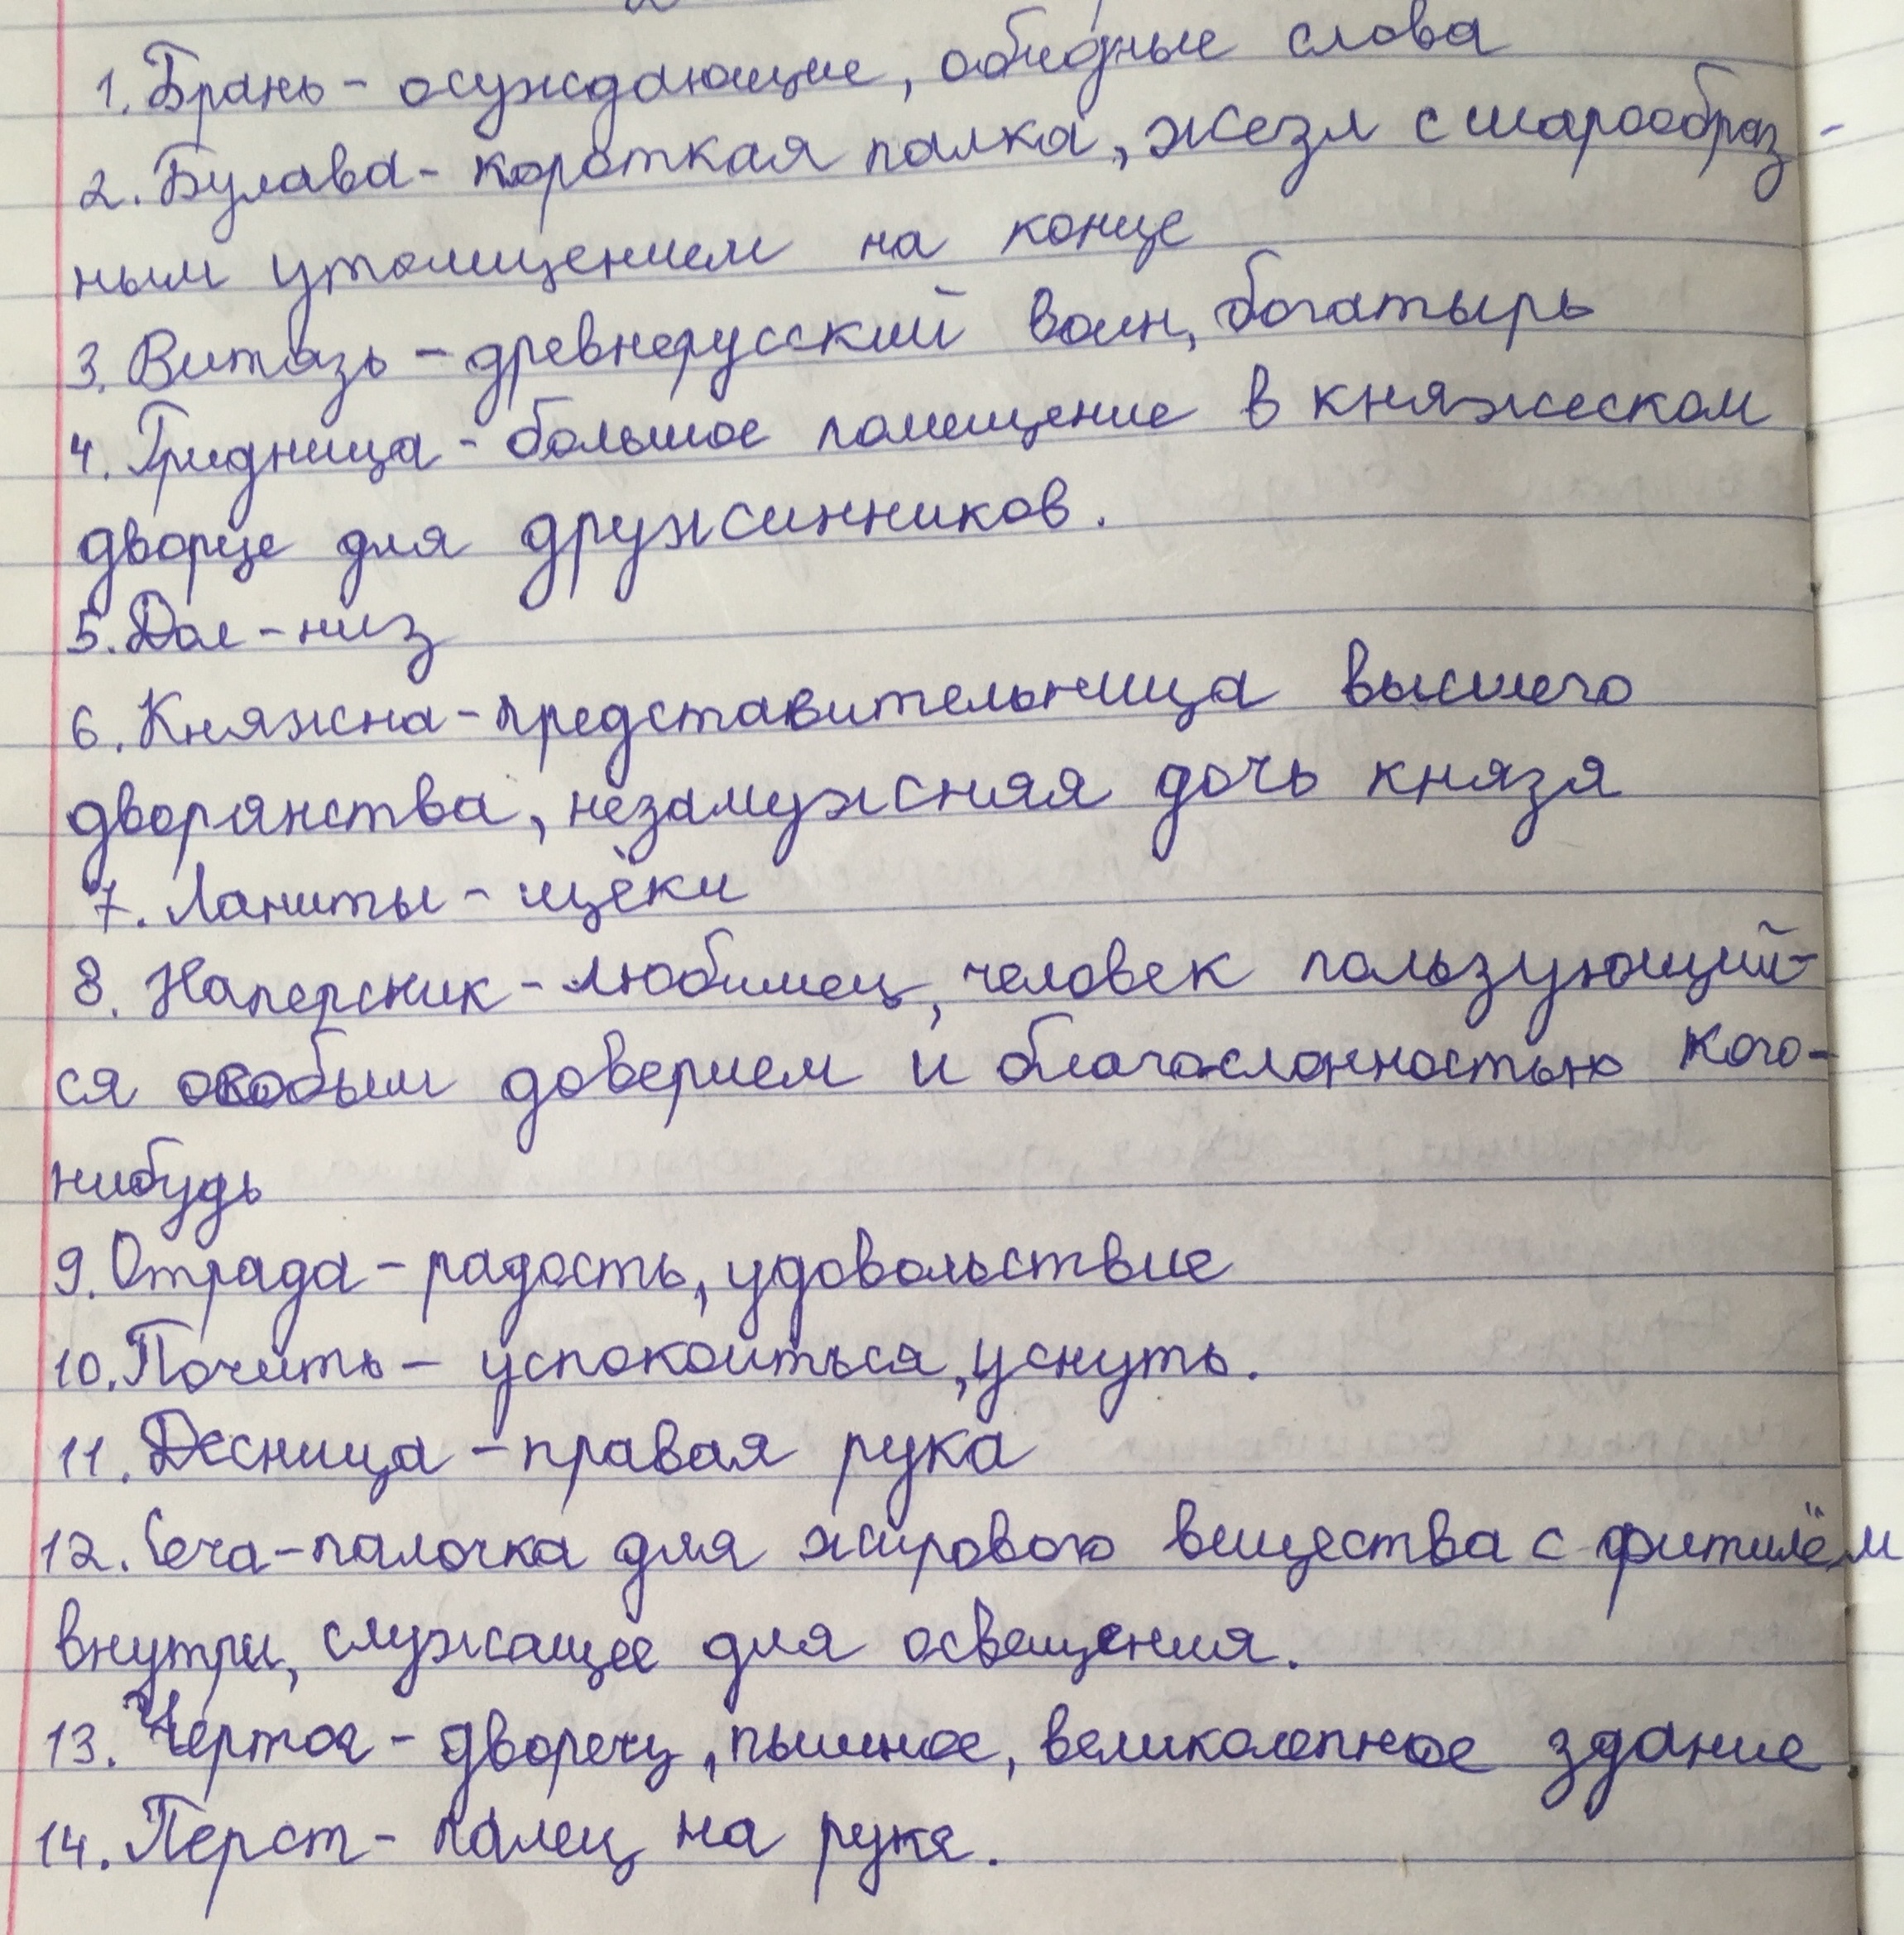 1. Брань - осуждающие, обидные слова
2. Булава - короткая палка, жезл с шарообраз-
ным утолщением на конце
3. Витязь - древнерусский воин, богатырь
4. Гридница - большое помещение в княжеском
дворце для дружинников.
5. Дол - низ
6. Княжна - представительница высшего
дворянства, незамужняя дочь князя
7. Ланиты - щёки
8. Наперсник - любимец, человек пользующий-
ся особым доверием и благосклонностью кого-
нибудь
9. Отрада - радость, удовольствие
10. Почить - успокоиться, уснуть.
11. Десница - правая рука
12. Свеча - палочка для жирового вещества с фитилём
внутри, служащее для освещения.
13. Чертог - дворец, пышное, великолепное здание
14. Перст - палец на руке.